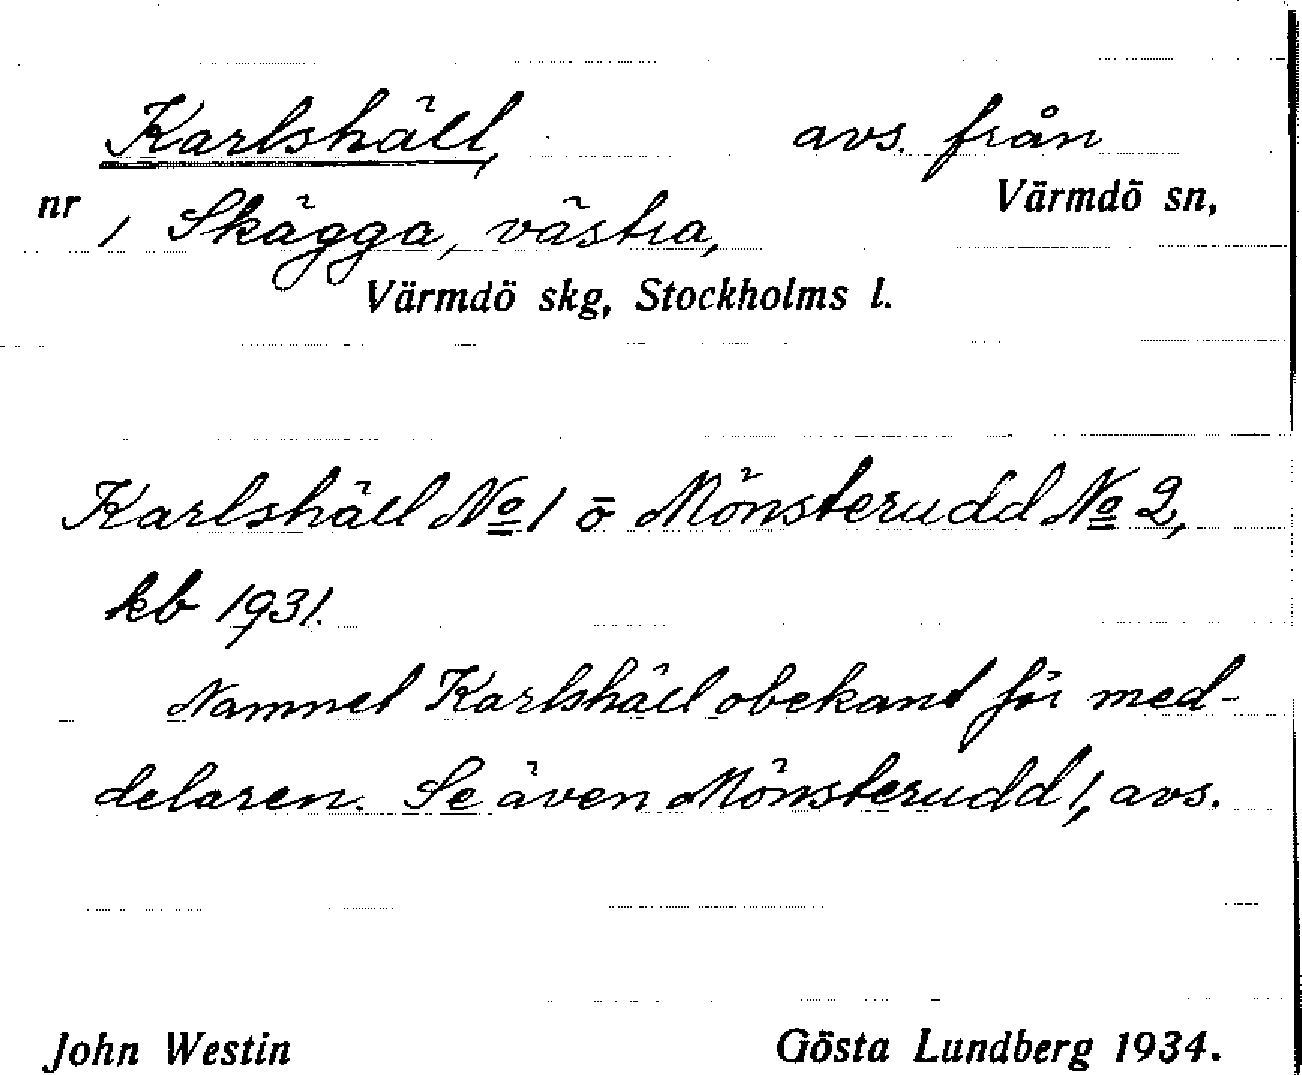 Karlshäll, avs. från
nr 1 Skägga, västra, Värmdö sn,
Värmdö skg, Stockholms l.
Karlshäll No 1 o Mönsterudd No 2,
kb 1931.
Namnet Karlshäll obekant för med-
delaren. Se även Mönsterudd 1, avs.
John Westin Gösta Lundberg 1934.